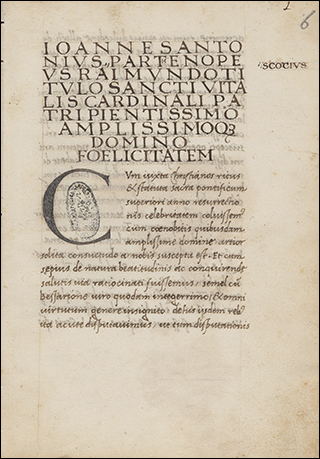 6
IOANNES ANTO
NIVS, PARTENOPE
VS RAIMVNDO TI
TVLO SANCTI VITA
LIS CARDINALI PA
TRI PIENTISSIMO
AMPLISSIMOQꝫ
DOMINO
FOELICITATEM
SCOCIVS
Cum iuxta christianos ritus
& statuta sacra pontificum
superiori anno resurrectio
nis celebritatem coluissem
cum coenobitis quibusdam
amplissime domine artior
solita consuetudo a nobis suscepta est. Et cum
sepius de natura beatitudinis ac conquirende
salutis via ratiocinati fuissemus, semel cum
Bessarione viro quodam integerrimo, & omni
virtutum genere insignito de his iisdem reb
ita acute disputavimus, ut cum disputationis